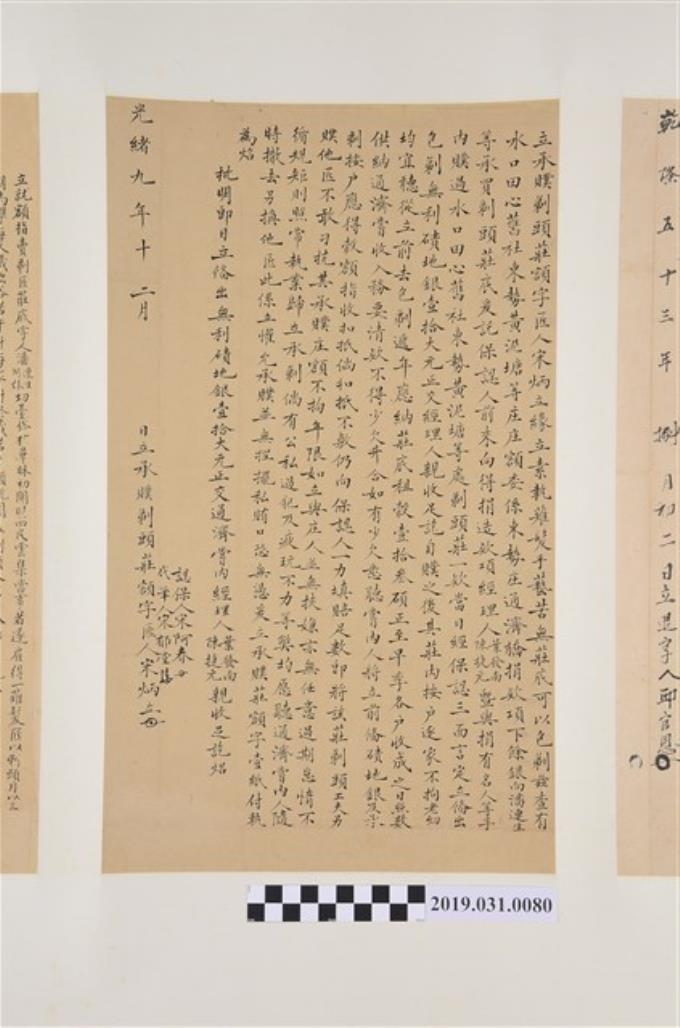 乾隆五十三年 捌月初二日立退字人邱官恩
立承贌剃頭莊額字匠人宋炳立緣立素執薙髮手藝苦無莊底可以包剃茲查有
水口田心舊社東勢黃泥塘等庄庄額委係東勢庄通濟橋捐款項下餘銀向潘連生
等承買剃頭莊底爰託保認人前來向得捐造款項經理人葉發南陳捷元暨與捐有名人等手
內贌過水口田心舊社東勢黃泥塘等處剃頭莊一款當日經保認三面言定立備出
包剃無利磧地銀壹拾大元正交經理人親收足訖自贌之後其莊內按戶逐家不拘老幼
均宜穩從立前去包剃遞年應納莊底租穀壹拾叁碩正至早季各戶收成之日照數
供納通濟嘗收入務要清款不得少欠升合如有少欠悉聽嘗內人將立前備磧地銀及承
剃按戶應得穀額指收扣抵倘扣抵不敷仍向保認人一力填賠足數即將該莊剃頭工夫另
贌他匠不敢刁抗其承贌庄額不拘年限如立與庄人並無扶嫌亦無任意過期怠惰不
循規矩則照常執業歸立承剃倘有公私過犯及疲玩不力等弊均愿聽通濟嘗內人隨
時撤去另換他匠此係立懽允承贌並無捏擺私賄口恐無憑爰立承贌莊額字壹紙付執
為炤
批明即日立備出無利磧地銀壹拾大元正交通濟嘗內經理人葉發南陳捷元親收足訖炤
認保人宋阿春
代筆人宋郁
日立承贌剃頭莊額字匠人宋炳立
光緒九年十二月
立就額指賣剃匠莊底字人潘連生
2019.031.0080